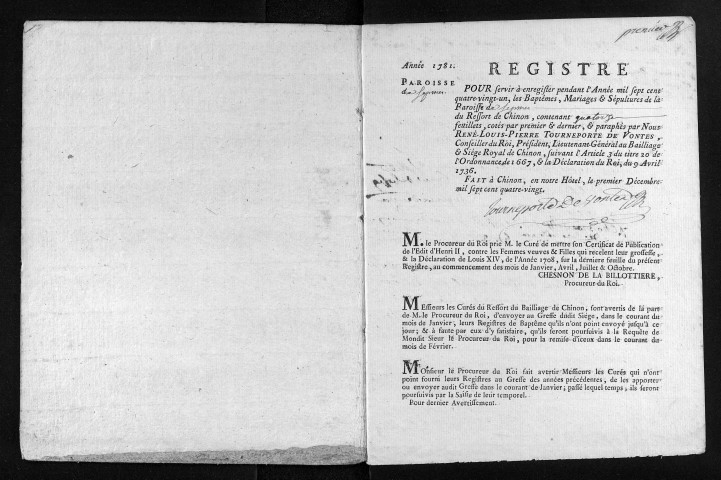 premier
Année 1781.
REGISTRE
PAROISSE
de
POUR servir à enregistrer pendant l'Année mil sept cent
quatre-vingt-un, les Baptêmes, Mariages & Sépultures de la
Paroisse de
du Ressort de Chinon, contenant quatorze
feuillets, cotés par premier & dernier, & paraphés par Nous
RENÉ-LOUIS-PIERRE TOURNEPORTE DE VONTES,
Conseiller du Roi, Président, Lieutenant-Général au Bailliage
& Siége Royal de Chinon, suivant l'Article 3 du titre 20 de
l'Ordonnance de 1667, & la Déclaration du Roi, du 9 Avril
1736.
FAIT à Chinon, en notre Hôtel, le premier Décembre
mil sept cent quatre-vingt.
Tourneporte De Vontes
M. le Procureur du Roi prie M. le Curé de mettre son Certificat de Publication
de l'Edit d'Henri II, contre les Femmes veuves & Filles qui recelent leur grossesse,
& la Déclaration de Louis XIV, de l'Année 1708, sur la derniere feuille du présent
Registre, au commencement des mois de Janvier, Avril, Juillet & Octobre.
CHESNON DE LA BILLOTTIERE,
Procureur du Roi.
Messieurs les Curés du Ressort du Bailliage de Chinon, sont avertis de la part
de M. le Procureur du Roi, d'envoyer au Greffe dudit Siége, dans le courant du
mois de Janvier, leurs Registres de Baptême qu'ils n'ont point envoyé jusqu'à ce
jour; & à faute par eux d'y satisfaire, qu'ils seront poursuivis à la Requête de
Mondit Sieur le Procureur du Roi, pour la remise d'iceux dans le courant du
mois de Février.
Monsieur le Procureur du Roi fait avertir Messieurs les Curés qui n'ont
point fourni leurs Registres au Greffe des années précédentes, de les apporter
ou envoyer audit Greffe dans le courant de Janvier; passé lequel temps, ils seront
poursuivis par la Saisie de leur temporel.
Pour dernier Avertissement.